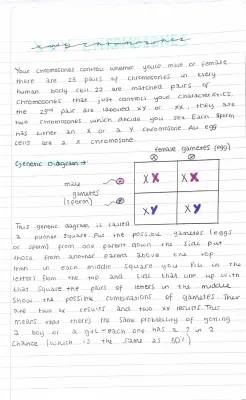 X and Y chromosomes
Your chromosomes control whether you're male or female
there are 23 pairs of chromosomes in every
human body cell. 22 are matched pairs of
chromosomes that just control your characteristics,
the 23rd pair are labelled XY or XX, they are
two chromosomes which decide you sex. Each sperm
has either an X or a Y chromosome. All egg
cells are a X chromosome
female gametes (egg)
Genetic Diagram →
X X
male
gametes
(sperm)
X
Y
XX XX
XY XY
This genetic diagram is called
a punner square. Put the possible gametes (eggs
or sperm) from one parent down the side put
those from another parent above the top
then in each middle square you fill in the
letters from the top and side that line up with
that square the pairs of letters in the middle
show the possible combinations of gametes. Ther
are two XX results and two XY results. This
means that there's the same probability of getting
a boy or a girl - each one has a in 2
chance (which is the same as 50%)